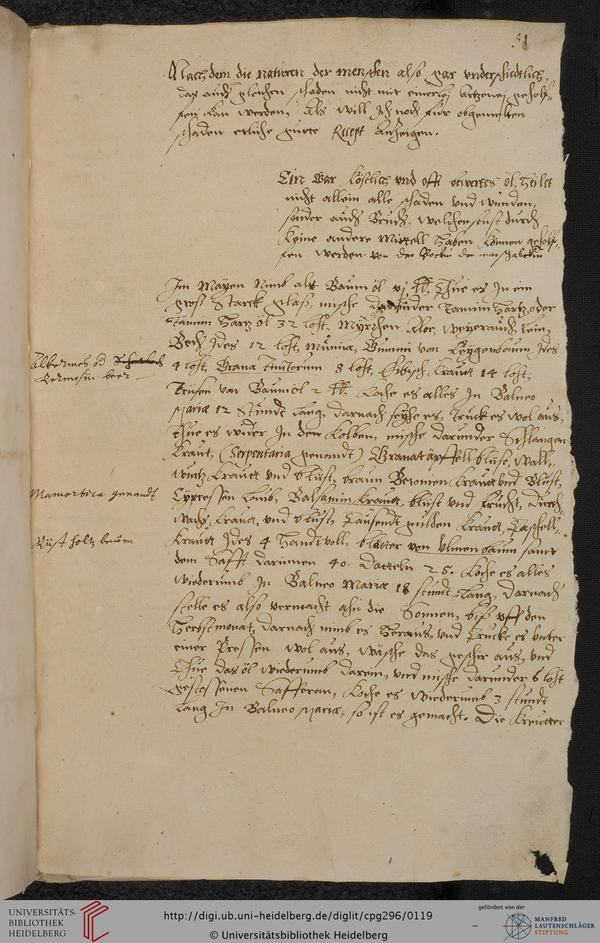 51
Nach dem die naturen der menschen also gar underschiedtlich,
das auch gleichen schaden nicht mit einerley artzeney geholf-
fen kan werden, Als will Ich noch für obgemelten
schaden etliche gutte Recept anzeigen.
Ein Gar köstlich und offt bewertes öl, heilet
nicht allein alle schaden und wunden,
sonder auch Bruch, welchen sonst durch
keine andere Mittell haben können geholf-
fen werden. von der
Im Mayen Nimb alt Baumöl vj ℔. Thue es In ein
gross starck glass, mische darunder Tannin Hartz oder
Tannin Hartz öl 32 loht, Myrrhen Aloe, weyerauch, kein
Bech Jdes 12 loht, Mumia, Gummi von Jdes
4 loht, Grana tinctorum 8 loht, Eibisch kraut 14 loht,
Trusen von Baumöl 2 ℔. Koche es alles In Balneo
Mariæ 12 stundt lang, darnach seyhe es, truck es wol aus,
thue es wider In den Kolben, mische darunder Schlangen
kraut, (Serpentaria genandt) Granatäpffell blüse, wall-
wurtz kraut und blust, braun Betonien kraut und blust,
Cypressen laub, Balsamin kraut, blust und frücht, Durch-
wachs kraut, und blust, Tausendt gulden kraut, Taschell-
kraut Jdes 4 Handt voll, blätter von Ulmenbaum sampt
dem Safft darinnen 40. Datteln 25. Koche es alles
widerumb In Balneo Mariæ 18 stundt lang, darnach
stelle es also vermacht ahn die Sonnen, biss uff den
Herbstmonat, darnach nimb es heraus, und trucke es unter
einer Pressen wol aus, wäsche das geschir aus, und
Thue das öl wiederumb darein, und mische darunder 6 loht
gestossenen Safferan, Koche es wiederumb 3 stundt
lang In Balneo Mariæ, so ist es gemacht. Die kreutter
Alkermes od
Kermesin beer
Momortica genandt
Rüst holtz baum
UNIVERSITÄTS-
BIBLIOTHEK
HEIDELBERG
http://digi.ub.uni-heidelberg.de/diglit/cpg296/0119
© Universitätsbibliothek Heidelberg
gefördert von der
MANFRED
LAUTENSCHLÄGER
STIFTUNG